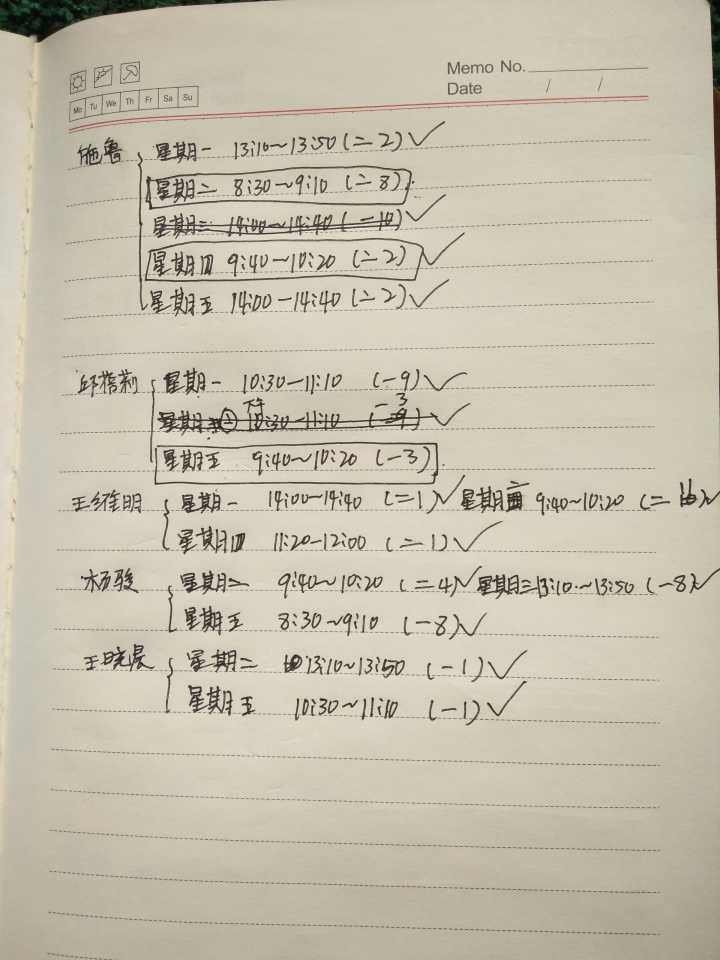 Memo No.
Date / /
Mo Tu We Th Fr Sa Su
施鲁 星期一 13:10~13:50 (二2) ✓
星期二 8:30~9:10 (二8)
星期三 14:00~14:40 (一10) ✓
星期四 9:40~10:20 (二2) ✓
星期五 14:00-14:40 (二2) ✓
邱蓓莉 星期一 10:30-11:10 (一9) ✓
下午 一3
星期 二 10:30-11:10 (一9) ✓
星期五 9:40~10:20 (一3)
王维明 星期一 14:00~14:40 (二1) ✓ 星期 9:40~10:20 (二 ) ✓
星期四 11:20-12:00 (二1) ✓
杨骏 星期二 9:40~10:20 (二4) ✓ 星期三 13:10~13:50 (一8) ✓
星期五 8:30~9:10 (一8) ✓
王晓晨 星期二 13:10~13:50 (一1) ✓
星期五 10:30~11:10 (一1) ✓